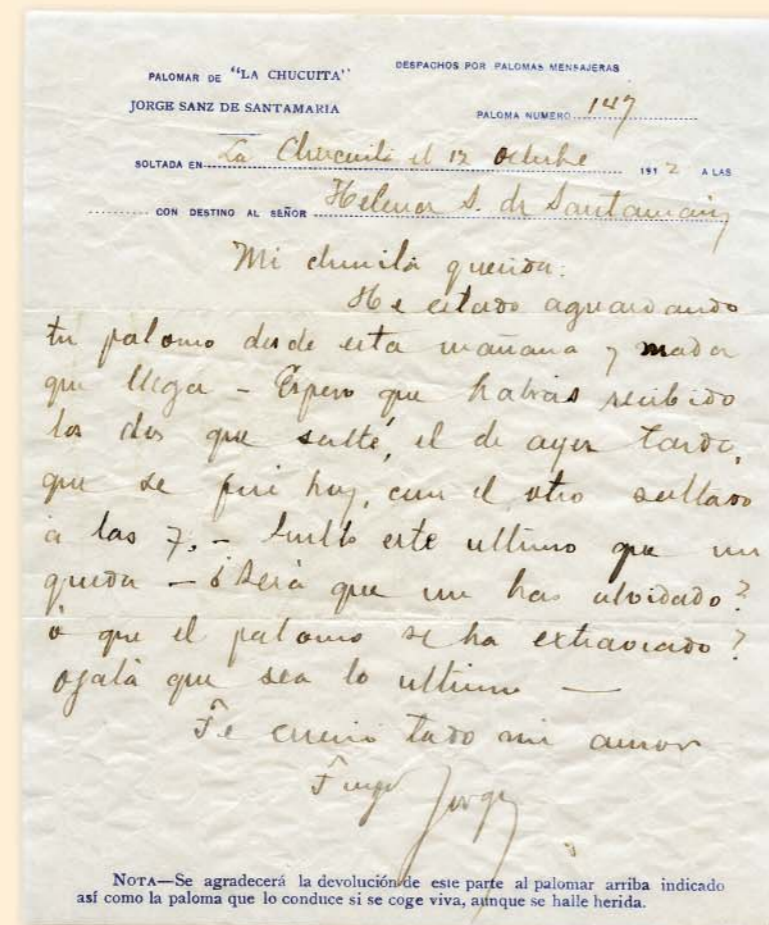 PALOMAR DE "LA CHUCUITA"
DESPACHOS POR PALOMAS MENSAJERAS
JORGE SANZ DE SANTAMARIA
PALOMA NUMERO 147
SOLTADA EN La Chucuita el 12 Octubre 1912 A LAS
CON DESTINO AL SEÑOR Helena S. de Santamaria
Mi chinita querida:
He estado aguardando
tu palomo desde esta mañana y nada
que llega - Espero que habrás recibido
los dos que solté, el de ayer tarde,
que se fué hoy, con el otro soltado
a las 7. - Suelto este ultimo que me
queda - ó Será que me has olvidado?
ó que el palomo se ha extraviado?
ojalá que sea lo ultimo —
Te envio todo mi amor
Tuyo Jorge
NOTA—Se agradecerá la devolución de este parte al palomar arriba indicado
así como la paloma que lo conduce si se coge viva, aunque se halle herida.